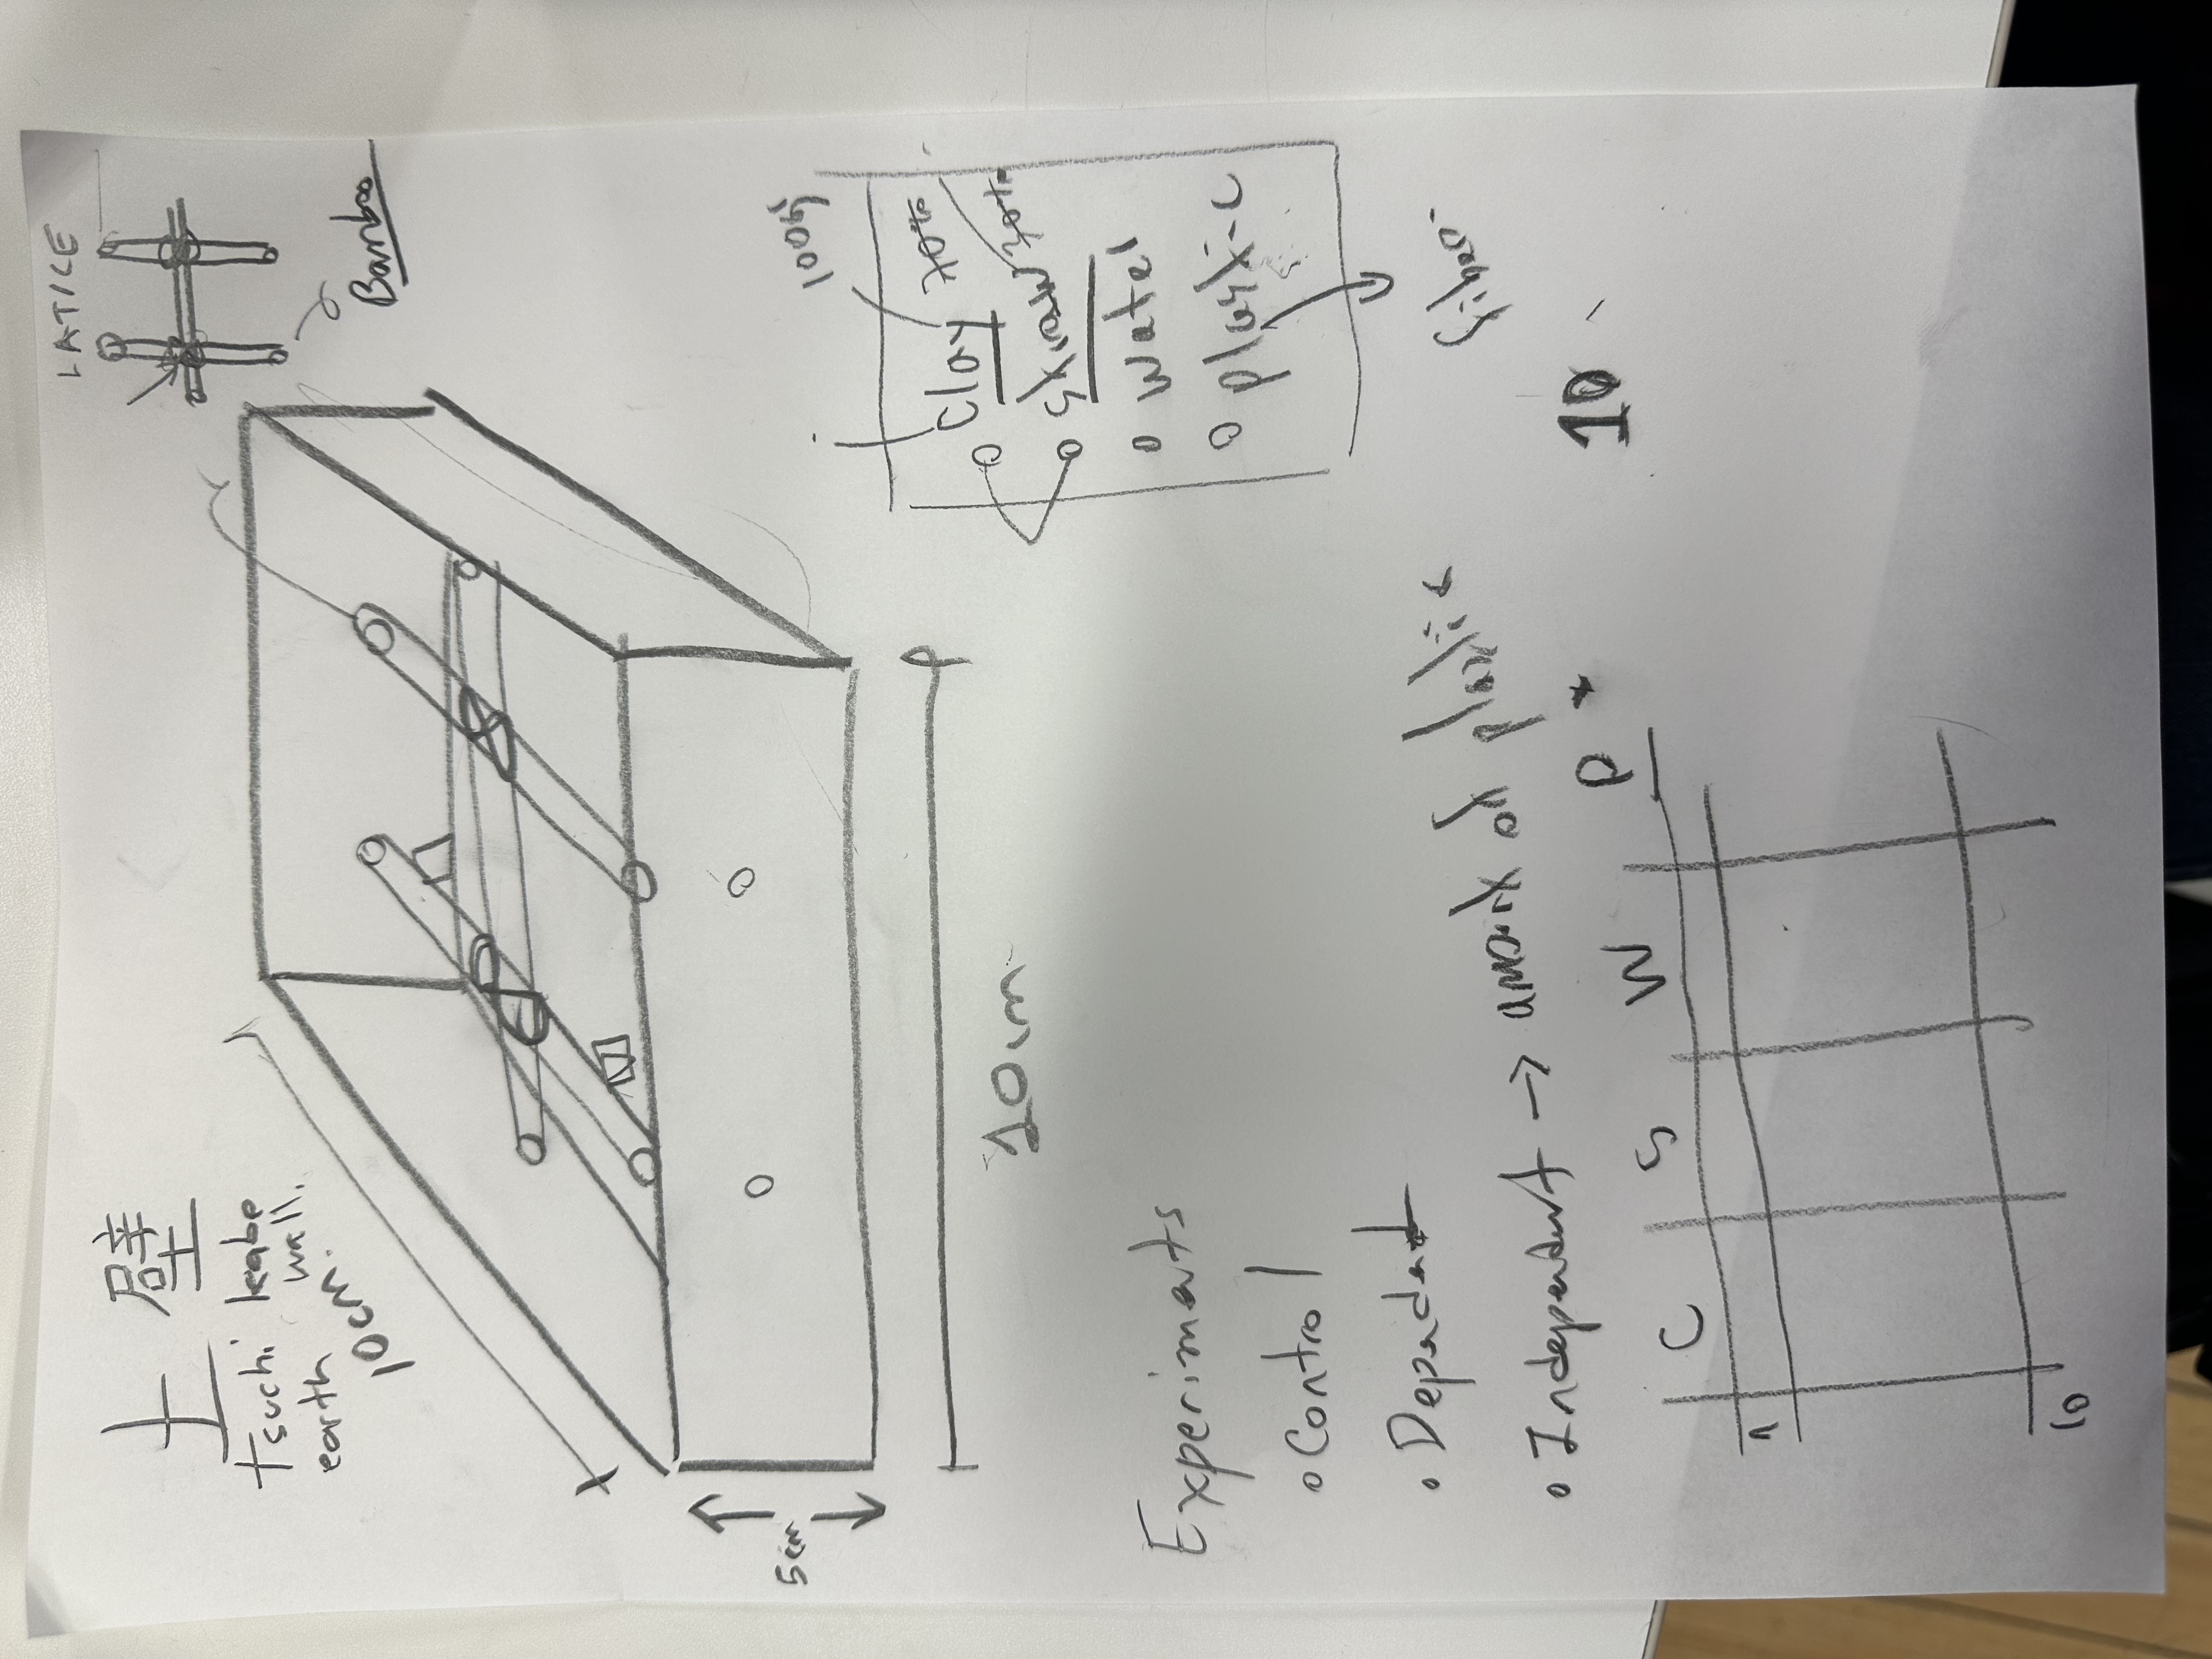 土壁
tsuchi kabe
earth wall.
10cm.
LATICE
Bamboo
5cm
10cm
100g
Clay 70%
Straw 30%
Water
plastic
fiber
Experiments
Control
Dependent
Independent → amount of plastic
10
C S W P *
1
10